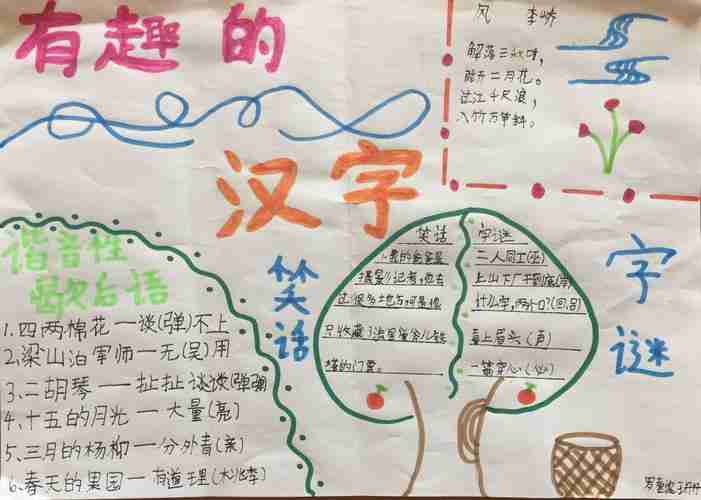 有趣的
汉字
风 李峤
解落三秋叶，
能开二月花。
过江千尺浪，
入竹万竿斜。
谐音性
歇后语
1.四两棉花一谈(弹)不上
2.梁山泊军师一无(吴)用
3.二胡琴——扯扯谈谈(弹弹)
4.十五的月光一大量(亮)
5.三月的杨柳一分外青(亲)
6.春天的果园一有道理(桃李)
笑话
笑话
我的爸爸是
过很多地
只收藏了
的门票。
字谜
二人同工(巫)
上山下厂干到底(岸)
什么字，两个口?(回.吕)
喜上眉头(声)
一箭穿心(必)
字谜